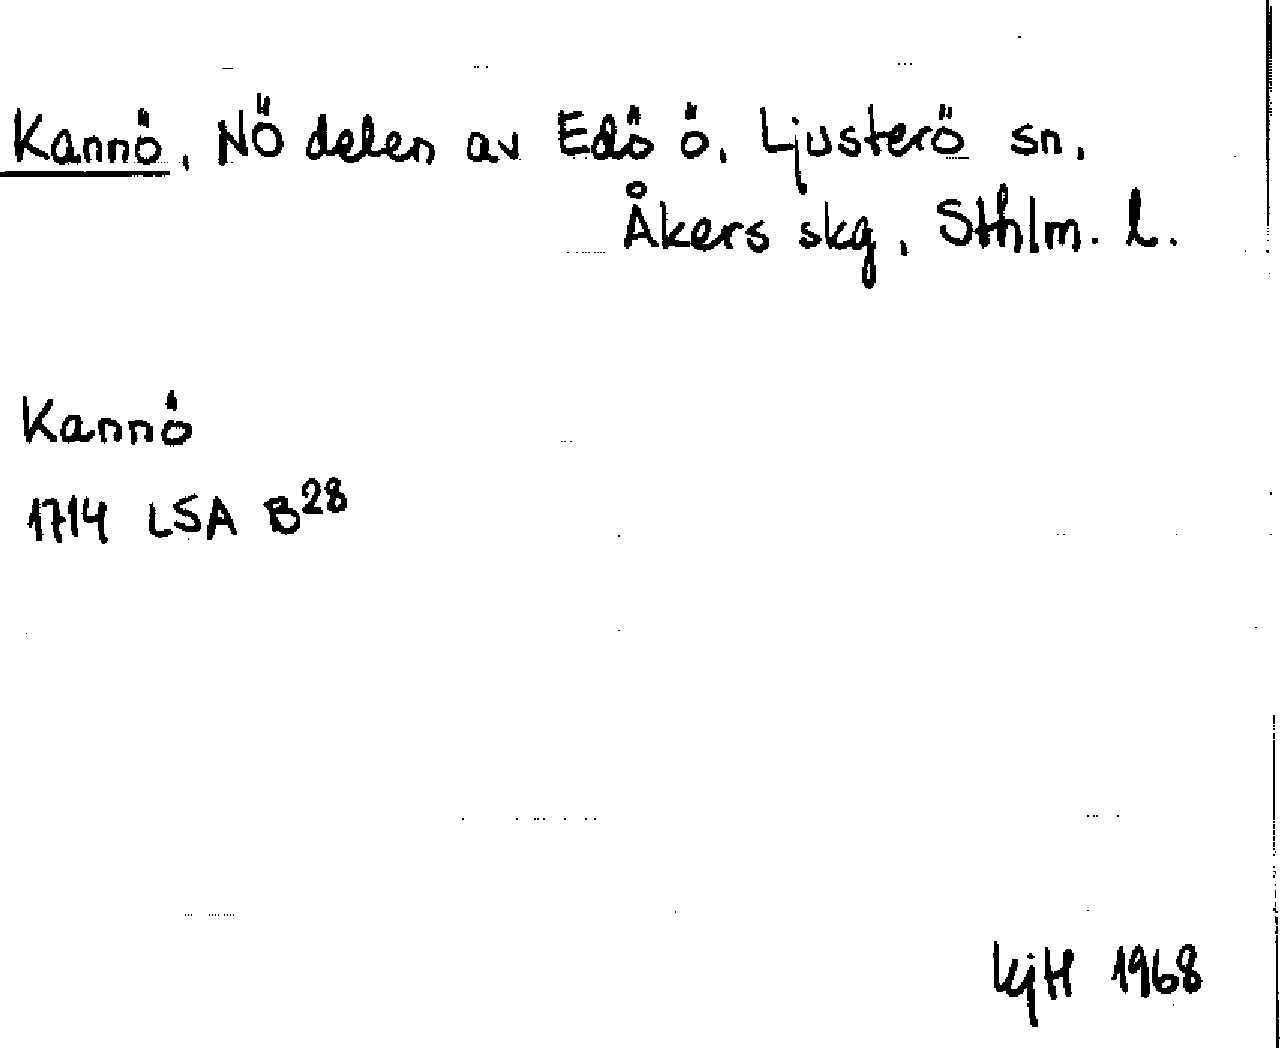 Kannö, NÖ delen av Edö ö, Ljusterö sn,
Åkers skg, Sthlm. l.
Kannö
1714 LSA B28
KjH 1968